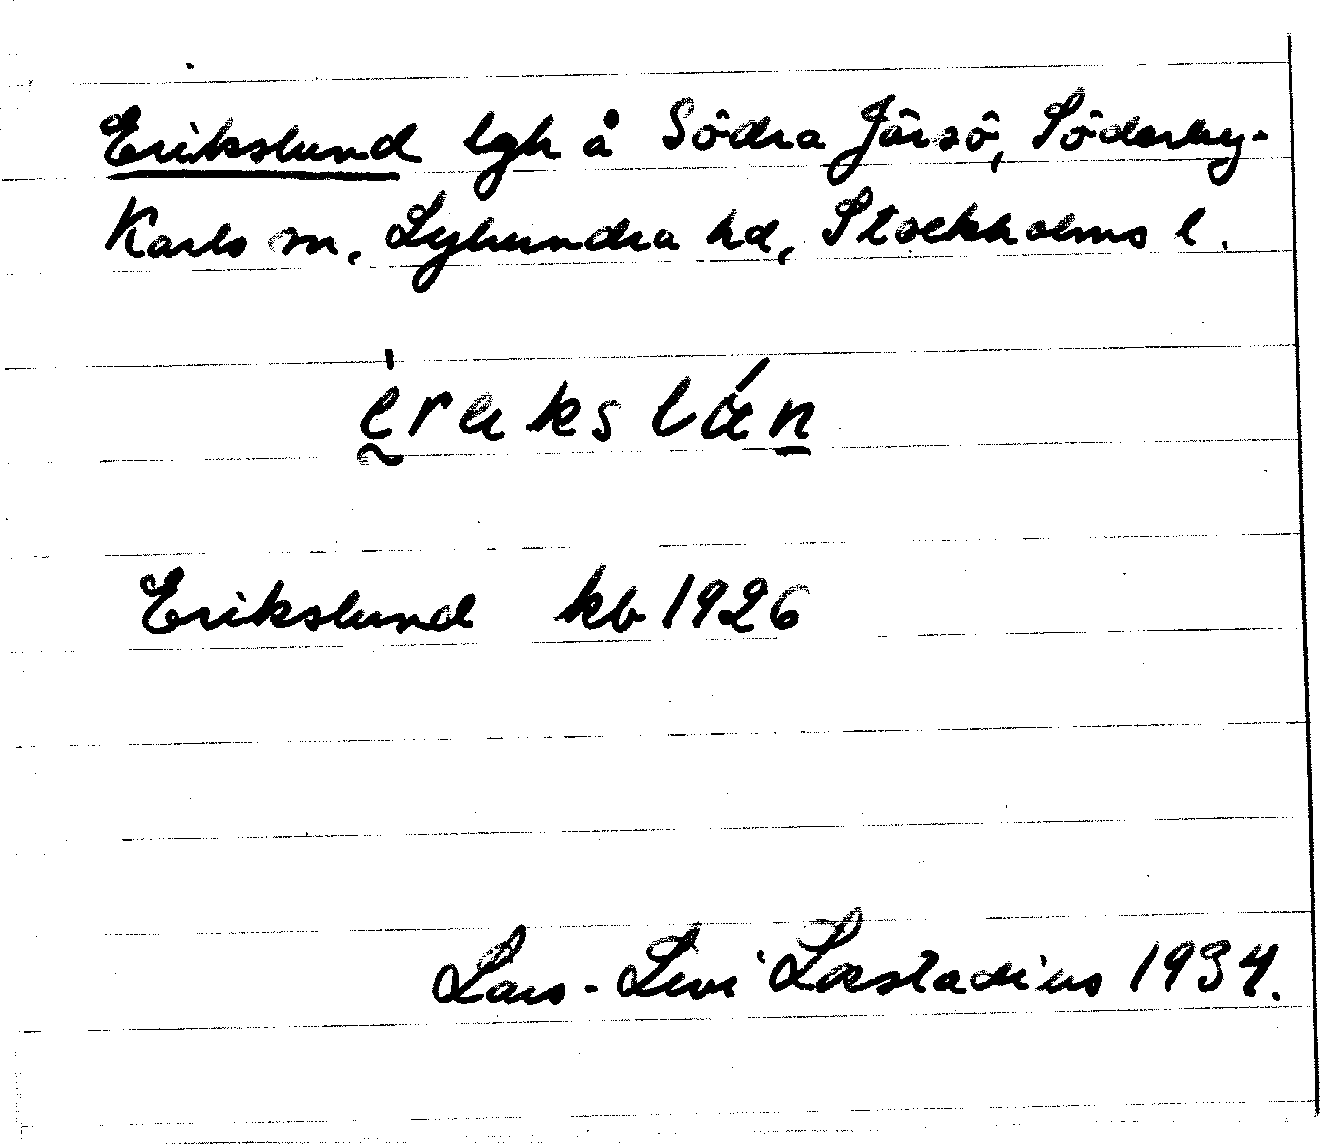 Erikslund lgh å Södra Järsö, Söderby-
Karls sn, Lyhundra hd, Stockholms l.
Erikslund kb 1926
Lars-Levi Læstadius 1934.